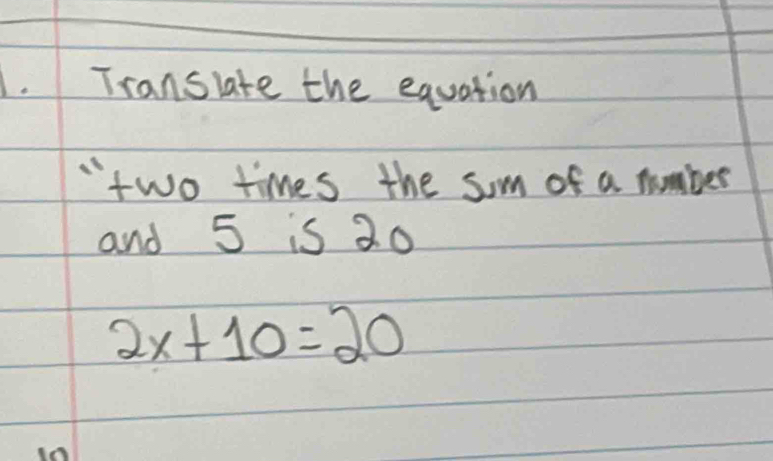 1. Translate the equation
"two times the sum of a number
and 5 is 20
2x+10=20
10